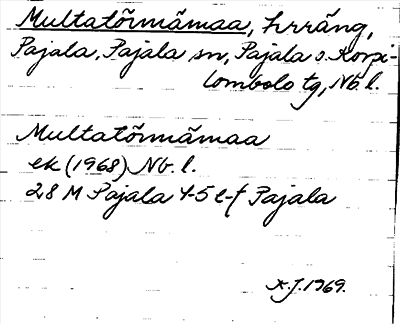 Multatörmämaa, hrräng,
Pajala, Pajala sn, Pajala o. Korpi-
lombolo tg, Nb. l.
Multatörmämaa
ek (1968) Nb. l.
28 M Pajala 4-5 e-f Pajala
K.J. 1969.